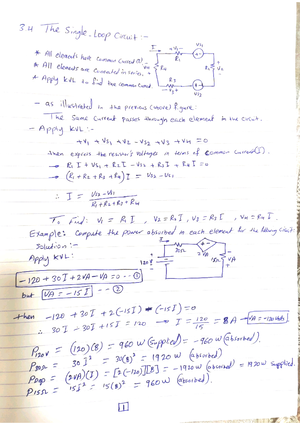 3.4 The Single-Loop Circuit :-
* All elements have common current (I).
* All elements are connected in series.
* Apply KVL to find the common current
I
+ V1 -
R1
VS1
R2
V2
R3
R4
VS2
- as illustrated in the previous (above) figure.
The same current passes through each element in the circuit.
- Apply KVL:-
+V1 + VS1 + V2 - VS2 + V3 + V4 = 0
then express the resistor's voltages in terms of common current(I).
→ R1 I + VS1 + R2 I - VS2 + R3 I + R4 I = 0
→ (R1 + R2 + R3 + R4) I = VS2 - VS1
∴ I = VS2 - VS1
R1 + R2 + R3 + R4
To find: V1 = R1 I , V2 = R2 I , V3 = R3 I , V4 = R4 I.
Example: Compute the power absorbed in each element for the following circuit
Solution:-
Apply KVL:
I
30Ω
2VA
120V
15Ω
VA
-120 + 30I + 2VA - VA = 0 --- ①
but VA = -15I --- ②
then -120 + 30I + 2(-15I) - (-15I) = 0
∴ 30I - 30I + 15I = 120 → I = 120/15 = 8A → VA = -120 volts
P120V = (120)(8) = 960 W (supplied) = -960 W (absorbed).
P30Ω = 30 I² = 30(8)² = 1920 W (absorbed)
PDep = (2VA)(I) = [2(-120)][8] = -1920 W (absorbed) = 1920 W supplied.
P15Ω = 15I² = 15(8)² = 960 W (absorbed).
1